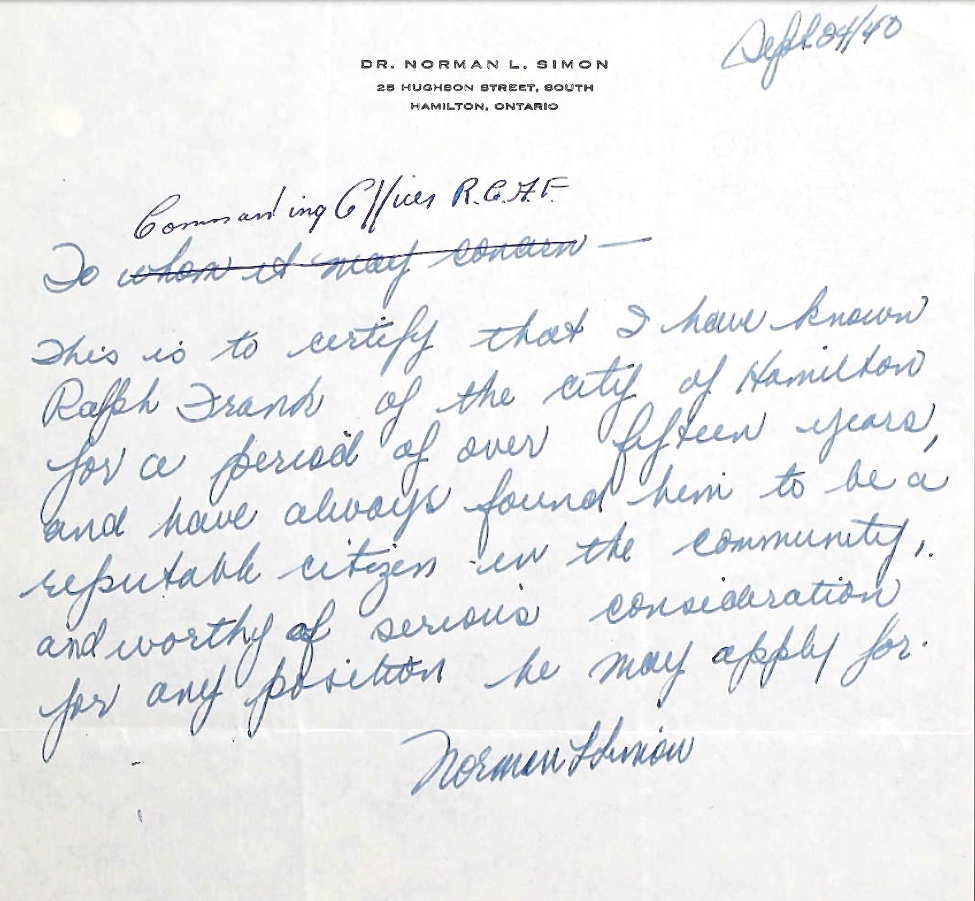 Sept 24/40
DR. NORMAN L. SIMON
25 HUGHSON STREET, SOUTH
HAMILTON, ONTARIO
Commanding Officer R.C.A.F.
To whom it may concern —
This is to certify that I have known
Ralph Frank of the city of Hamilton
for a period of over fifteen years,
and have always found him to be a
reputable citizen in the community,
and worthy of serious consideration
for any position he may apply for.
Norman L Simon